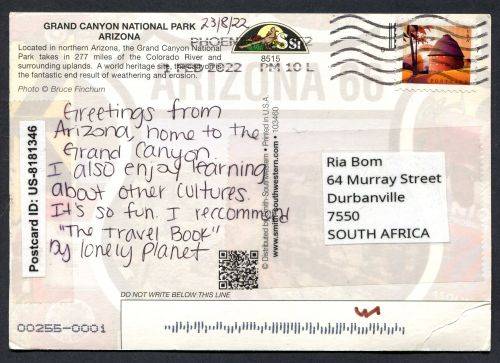 GRAND CANYON NATIONAL PARK
ARIZONA
23/8/22
Located in northern Arizona, the Grand Canyon National
Park takes in 277 miles of the Colorado River and
surrounding uplands. A world heritage site, the canyon is
the fantastic end result of weathering and erosion.
Photo © Bruce Finchum
SSi
8515
PHOENIX
FEB 2022 PM 10 L
FOREVER
Greetings from
Arizona, home to the
Grand Canyon.
I also enjoy learning
about other cultures.
It's so fun. I reccommend
"The Travel Book"
by lonely Planet
Postcard ID: US-8181346
© Distributed by Smith-Southwestern • Printed in U.S.A.
www.smith-southwestern.com • 103460
Ria Bom
64 Murray Street
Durbanville
7550
SOUTH AFRICA
DO NOT WRITE BELOW THIS LINE
00255-0001